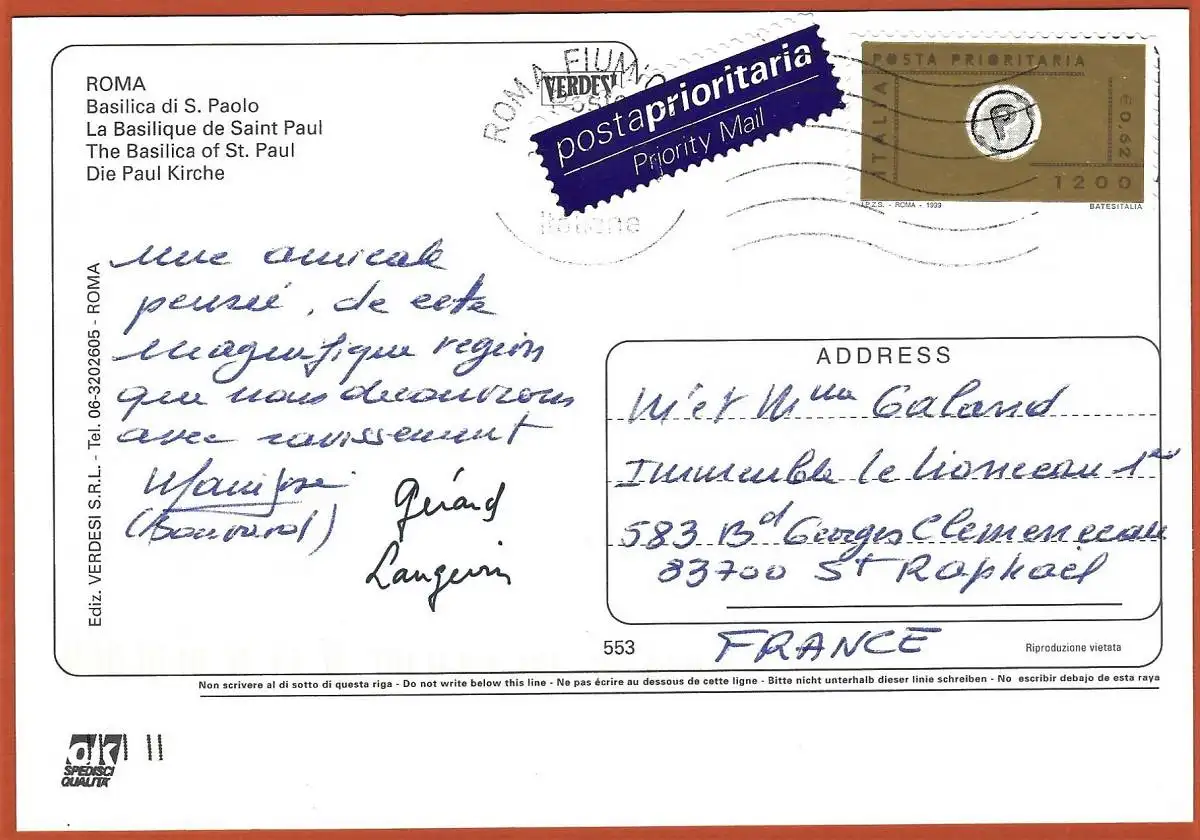 ROMA
Basilica di S. Paolo
La Basilique de Saint Paul
The Basilica of St. Paul
Die Paul Kirche
ROMA FIUMIC
VERDESI
Poste
italiane
postaprioritaria
Priority Mail
POSTA PRIORITARIA
ITALIA
P
€0,62
1200
I.P.Z.S. - ROMA - 1999
BATESITALIA
Ediz. VERDESI S.R.L. - Tel. 06-3202605 - ROMA
une amicale
pensée, de cette
magnifique region
que nous decouvrons
avec ravissement
Marijose
(Bouvard)
Gérard
Langevin
ADDRESS
Mr et Mme Galand
Immeuble le Lionceau 1er
583 Bd Georges Clemenceau
83700 St Raphaël
FRANCE
553
Riproduzione vietata
Non scrivere al di sotto di questa riga - Do not write below this line - Ne pas écrire au dessous de cette ligne - Bitte nicht unterhalb dieser linie schreiben - No escribir debajo de esta raya
ok
SPEDISCI
QUALITA'